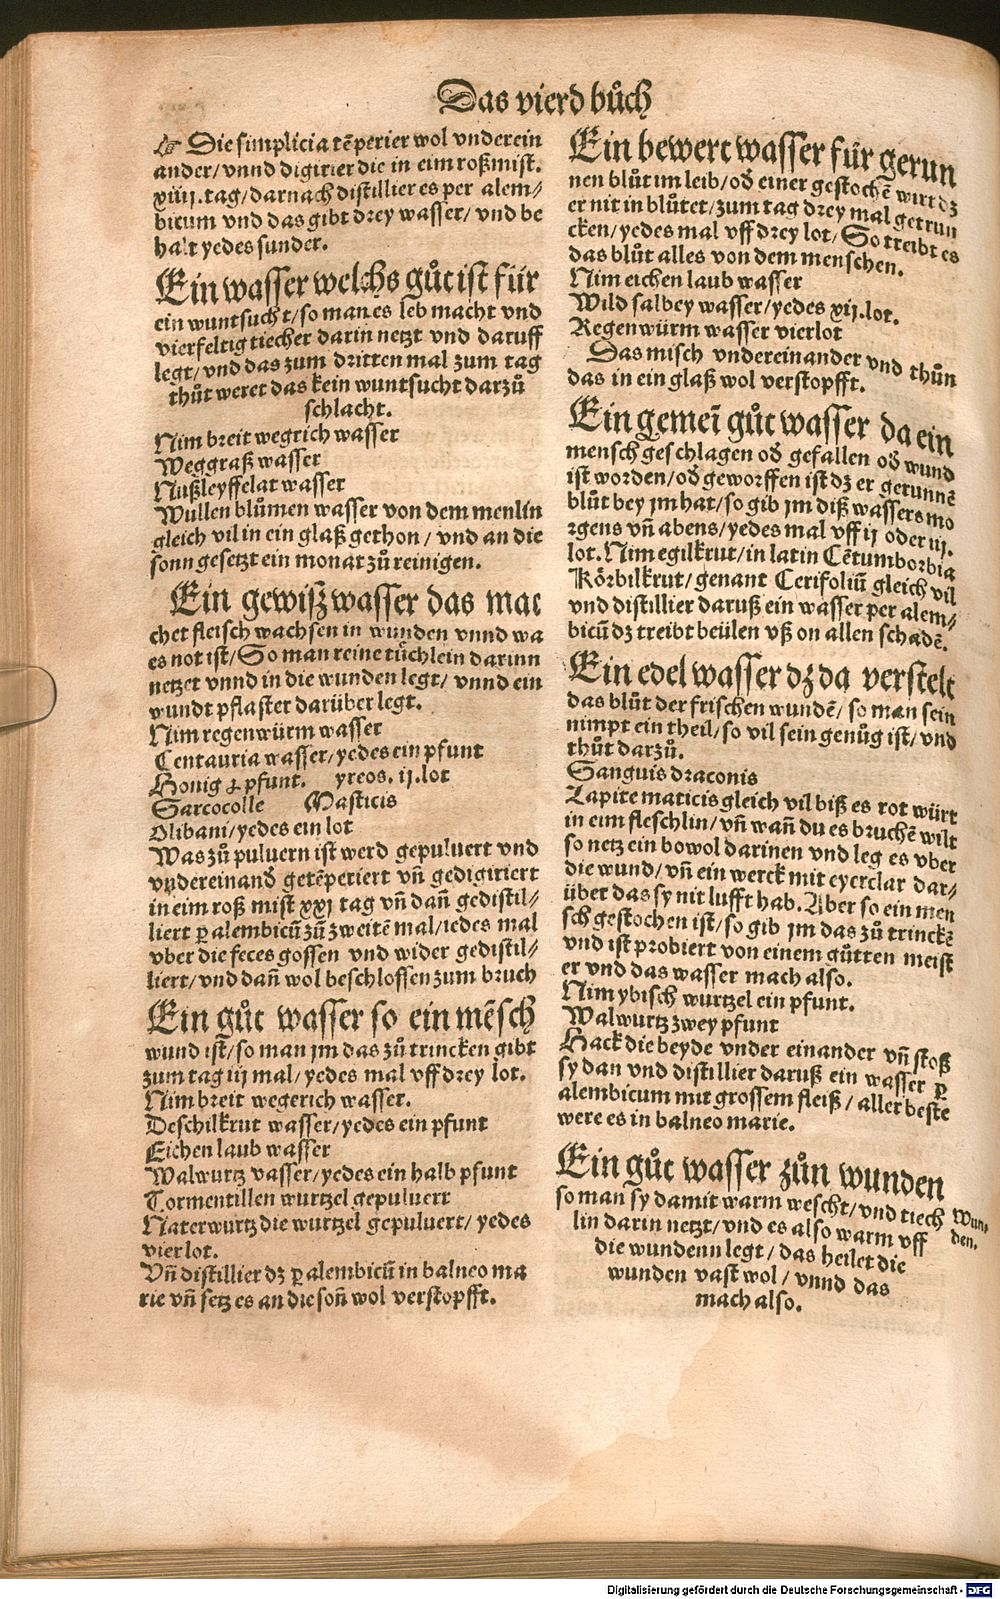 Das vierd bůch
☞ Die simplicia tēperier wol vnderein
ander/vnnd digirier die in eim roßmist.
xiiij.tag/darnach distillier es per alem⸗
bicum vnd das gibt drey wasser/vnd be
halt yedes sunder.
Ein wasser welchs gůt ist für
ein wuntsucht/so man es leb macht vnd
vierfeltig tiecher darin netzt vnd daruff
legt/vnd das zum dritten mal zum tag
thůt weret das kein wuntsucht darzů
schlacht.
Nim breit wegrich wasser
Weggraß wasser
Nußleyffelat wasser
Wullen blůmen wasser von dem menlin
gleich vil in ein glaß gethon/vnd an die
sonn gesetzt ein monat zů reinigen.
Ein gewisz wasser das mac
chet fleisch wachsen in wunden vnnd wa
es not ist/So man reine tüchlein darinn
netzet vnnd in die wunden legt/vnnd ein
wundt pflaster darüber legt.
Nim regenwürm wasser
Centauria wasser/yedes ein pfunt
Honig pfunt. yreos.ij.lot
Sarcocolle Masticis
Olibani/yedes ein lot
Was zů puluern ist werd gepuluert vnd
vndereinand getēperiert vñ gedigiriert
in eim roß mist xxj tag vñ dañ gedistil⸗
liert ꝑ alembicū zů zweitē mal/iedes mal
vber die feces gossen vnd wider gedistil⸗
liert/vnd dañ wol beschlossen zum bruch
Ein gůt wasser so ein mēsch
wund ist/so man jm das zů trincken gibt
zum tag iij mal/yedes mal vff drey lot.
Nim breit wegerich wasser.
Deschilkrut wasser/yedes ein pfunt
Eichen laub wasser
Walwurtz vasser/yedes ein halb pfunt
Tormentillen wurtzel gepuluerr
Naterwurtz die wurtzel gepuluert/yedes
vier lot.
Vñ distillier dz ꝑ alembicū in balneo ma
rie vñ setz es an die soñ wol verstopfft.
Ein bewert wasser für gerun
nen blůt im leib/od einer gestochē wirt dz
er nit in blůtet/zum tag drey mal getrun
cken/yedes mal vff drey lot/So treibt es
das blůt alles von dem menschen.
Nim eichen laub wasser
Wild salbey wasser/yedes xij.lot.
Regenwürm wasser vierlot
Das misch vndereinander vnd thůn
das in ein glaß wol verstopfft.
Ein gemeī gůt wasser da ein
mensch geschlagen od gefallen od wund
ist worden/od geworffen ist dz er gerunnē
blůt bey jm hat/so gib jm diß wassers mo
rgens vñ abens/yedes mal vff ij oder iij.
lot. Nim egilkrut/in latin Cētumborbia
Körbilkrut/genant Cerifoliū gleich vil
vnd distillier daruß ein wasser per alem⸗
bicū dz treibt beülen vß on allen schadē.
Ein edel wasser dz da verstelt
das blůt der frischen wundē/so man sein
nimpt ein theil/so vil sein genůg ist/vnd
thůt darzů.
Sanguis draconis
Lapite maticis gleich vil biß es rot würt
in eim fleschlin/vñ wañ du es bruchē wilt
so netz ein bowol darinen vnd leg es vber
die wund/vñ ein werck mit eyerclar dar⸗
über das sy nit lufft hab. Aber so ein men
sch gestochen ist/so gib jm das zů trinckē
vnd ist probiert von einem gůtten meist
er vnd das wasser mach also.
Nim ybisch wurtzel ein pfunt.
Walwurtz zwey pfunt
Hack die beyde vnder einander vñ stoß
sy dan vnd distillier daruß ein wasser ꝑ
alembicum mit grossem fleiß/aller beste
were es in balneo marie.
Ein gůt wasser zůn wunden
so man sy damit warm wescht/vnd tiech
lin darin netzt/vnd es also warm vff
die wundenn legt/das heilet die
wunden vast wol/vnnd das
mach also.
Wun⸗
den.
Digitalisierung gefördert durch die Deutsche Forschungsgemeinschaft - DFG